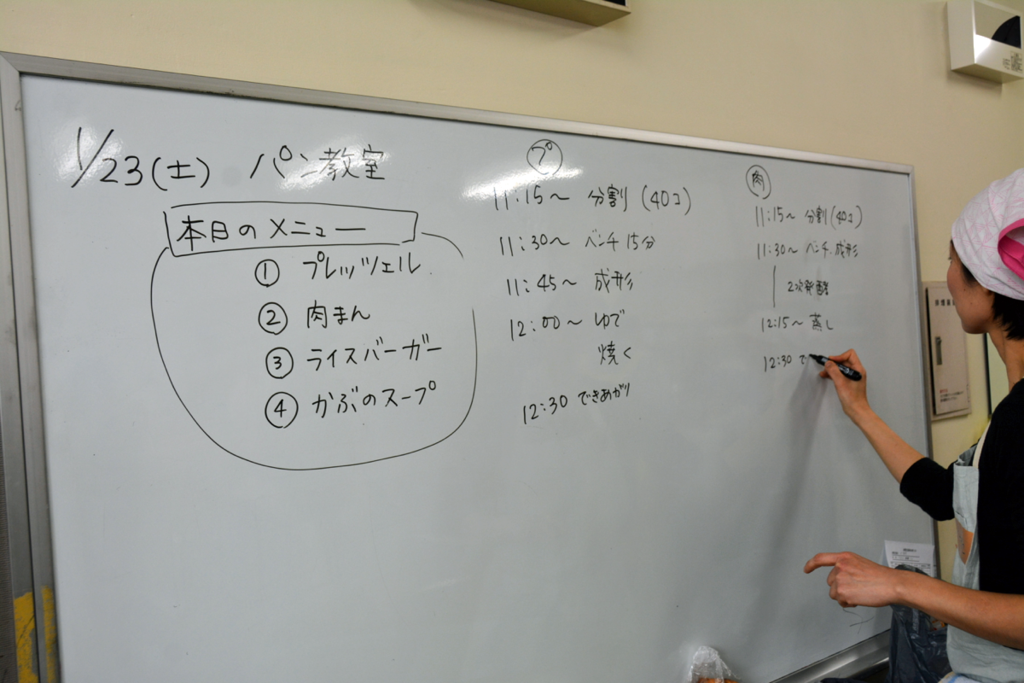 1/23(土) パン教室
本日のメニュー
① プレッツェル
② 肉まん
③ ライスバーガー
④ かぶのスープ
プ
11:15～ 分割 (40コ)
11:30～ ベンチ 15分
11:45～ 成形
12:00～ ゆで
焼く
12:30 できあがり
肉
11:15～ 分割 (40コ)
11:30～ ベンチ.成形
2次発酵
12:15～ 蒸し
12:30 で